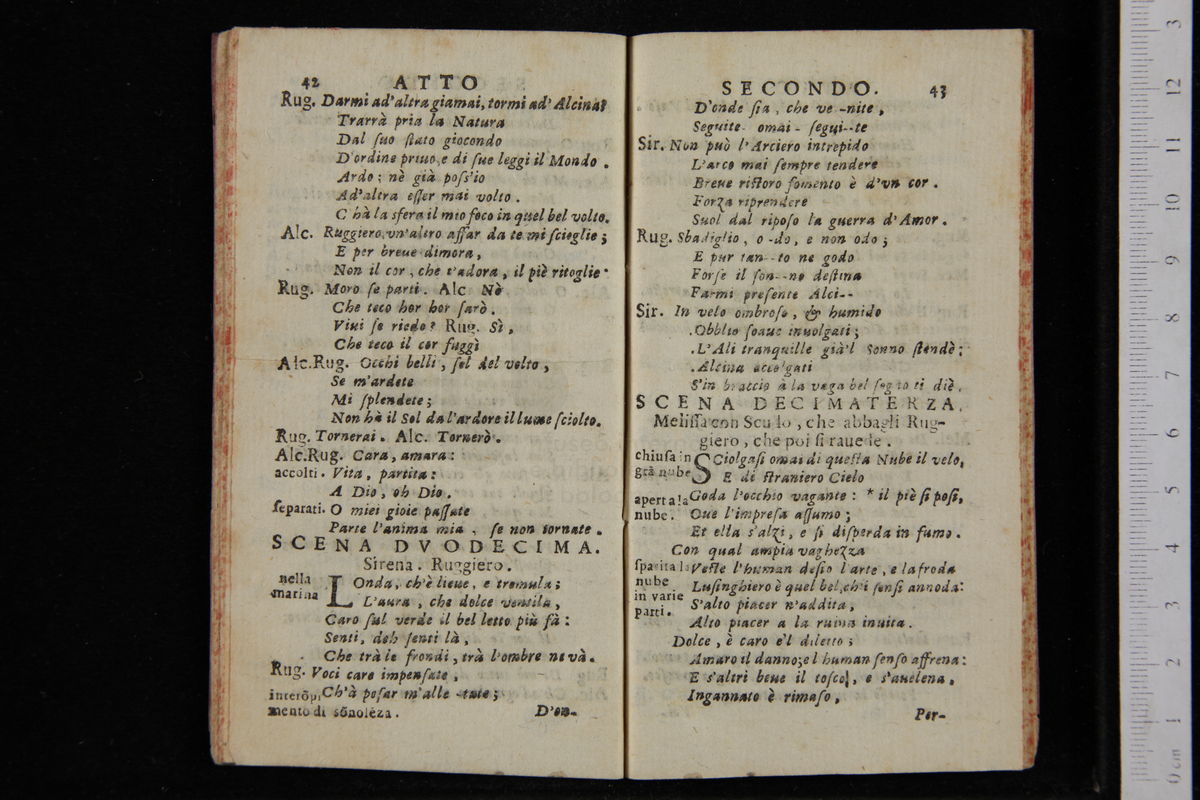 42 ATTO
Rug. Darmi ad'altra giamai, tormi ad' Alcina?
Trarrà pria la Natura
Dal suo stato giocondo
D'ordine priuo, e di sue leggi il Mondo.
Ardo; nè già poss'io
Ad'altra esser mai volto.
C hà la sfera il mio foco in quel bel volto.
Alc. Ruggiero, vn'altro affar da te mi scioglie;
E per breue dimora,
Non il cor, che t'adora, il piè ritoglie.
Rug. Moro se parti. Alc. Nò
Che teco hor hor sarò.
Viui se riedo? Rug. Sì,
Che teco il cor fuggì
Alc.Rug. Occhi belli, sol del volto,
Se m'ardete
Mi splendete;
Non hà il Sol da l'ardore il lume sciolto.
Rug. Tornerai. Alc. Tornerò.
Alc.Rug. Cara, amara:
accolti. Vita, partita:
A Dio, oh Dio.
separati. O miei gioie passate
Parte l'anima mia, se non tornate.
SCENA DVODECIMA.
Sirena. Ruggiero.
nella marina L Onda, ch'è lieue, e tremula;
L'aura, che dolce ventila,
Caro sul verde il bel letto più fà:
Senti, deh senti là,
Che trà le frondi, trà l'ombre ne và.
Rug. Voci care impensate,
interõpi Ch'à posar m'alle -tate;
mento di sõnolẽza. D'on-
SECONDO. 43
D'onde sia, che ve -nite,
Seguite- omai - segui--te
Sir. Non può l'Arciero intrepido
L'arco mai sempre tendere
Breue ristoro fomento è d'vn cor.
Forza riprendere
Suol dal riposo la guerra d'Amor.
Rug. Sbadiglio, o -do, e non odo;
E pur tan--to ne godo
Forse il son--no destina
Farmi presente Alci--
Sir. In velo ombroso, & humido
.Obblio soaue inuolgati;
.L'Ali tranquille già'l Sonno stendè;
.Alcina accolgati
S'in braccio à la vaga bel sogno ti diè.
SCENA DECIMATERZA.
Melissa con Scudo, che abbagli Rug-
giero, che poi si rauede.
chiusa in grã nube S Ciolgasi omai di questa Nube il velo,
E di straniero Cielo
aperta la nube. Goda l'occhio vagante: * il piè si posi,
Oue l'impresa assumo;
Et ella s'alzi, e si disperda in fumo.
Con qual ampia vaghezza
sparita la nube in varie parti. Veste l'human desio l'arte, e la froda
Lusinghiero è quel bel, ch'i sensi annoda:
S'alto piacer n'addita,
Alto piacer a la ruina inuita.
Dolce, è caro e'l diletto;
Amaro il danno; e l human senso affrena:
E s'altri beue il tosco, e s'auelena,
Ingannato è rimaso,
Per-